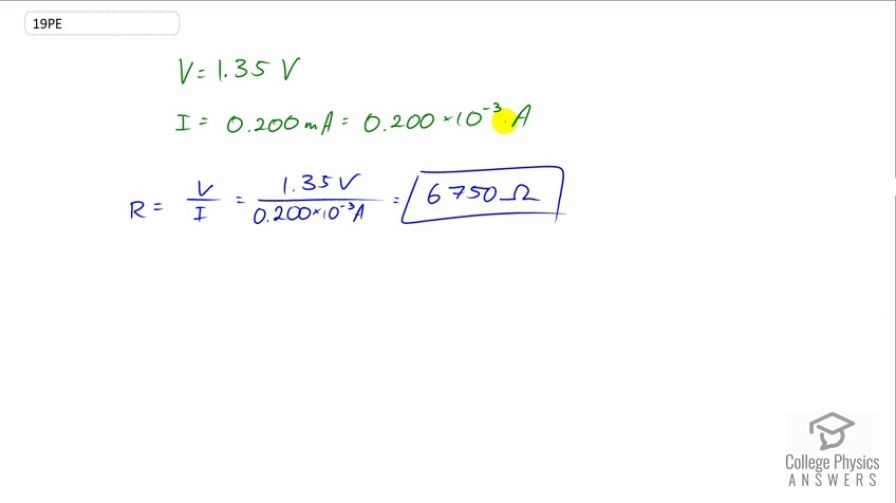 19PE
V = 1.35 V
I = 0.200 mA = 0.200 × 10⁻³ A
R = V/I = 1.35 V / 0.200×10⁻³A = 6750 Ω
College Physics
ANSWERS